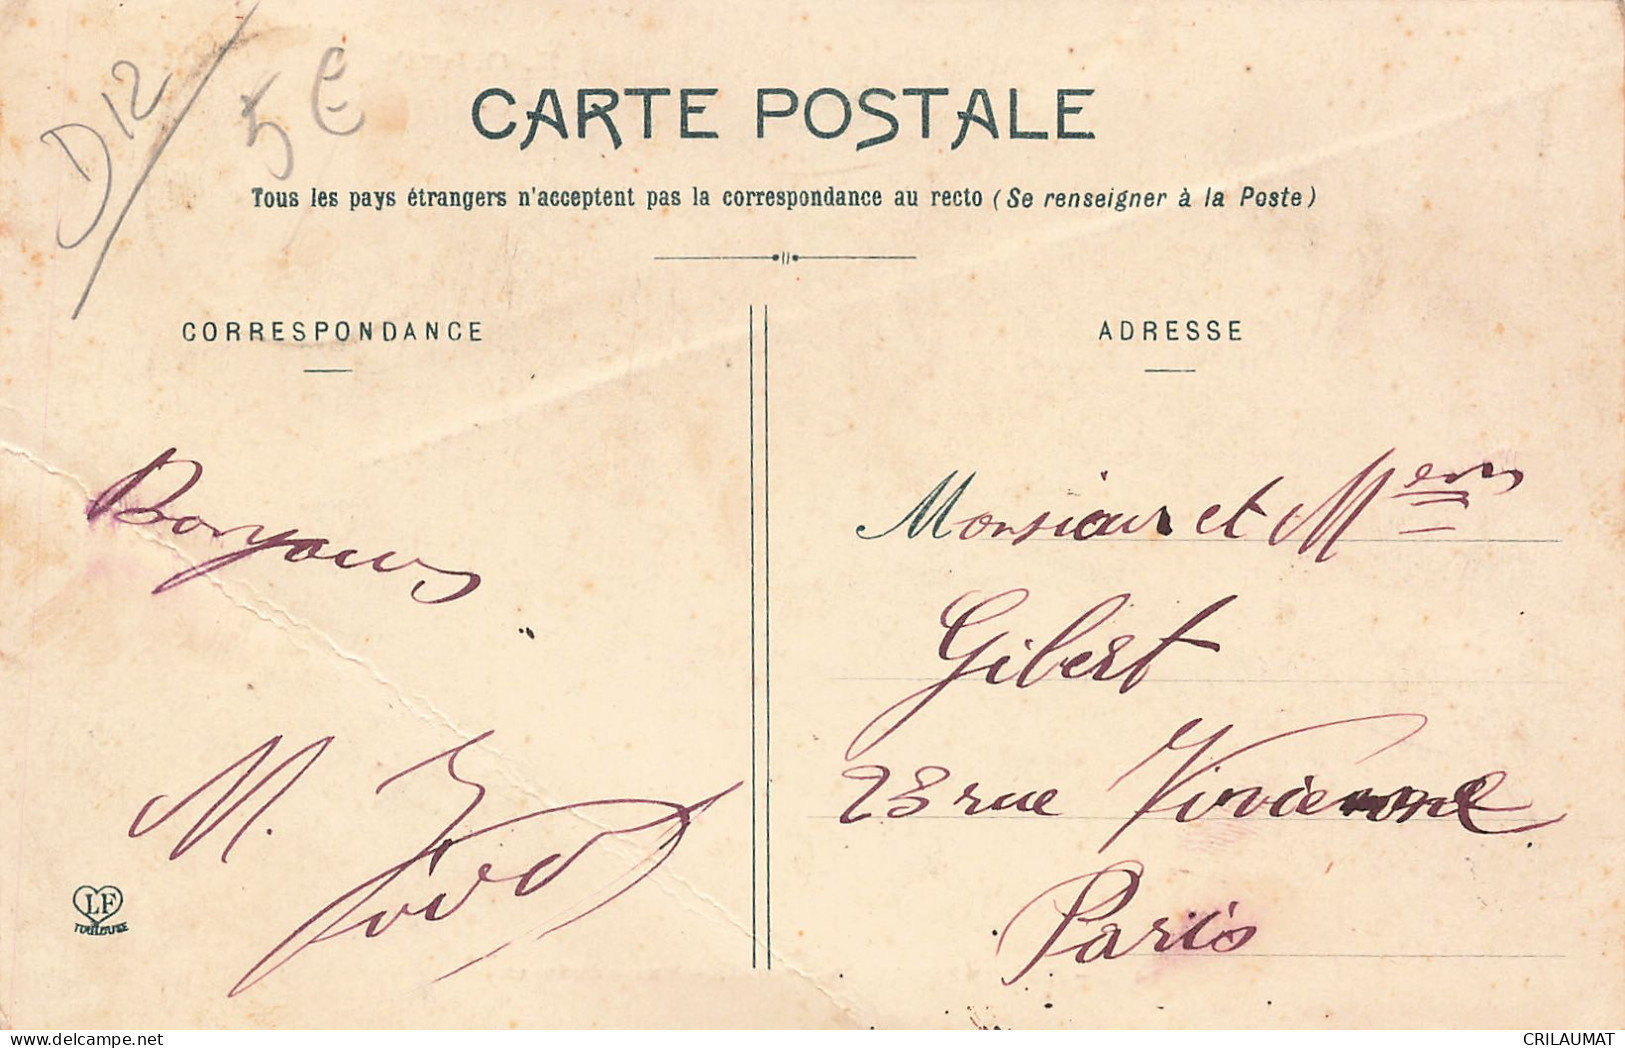 D12
5€
CARTE POSTALE
Tous les pays étrangers n'acceptent pas la correspondance au recto (Se renseigner à la Poste)
CORRESPONDANCE
ADRESSE
Bonjours
M.
LF
TOULOUSE
Monsieur et Mem
Gibert
23 rue Vivienne
Paris
https://www.delcampe.net
CRILAUMAT